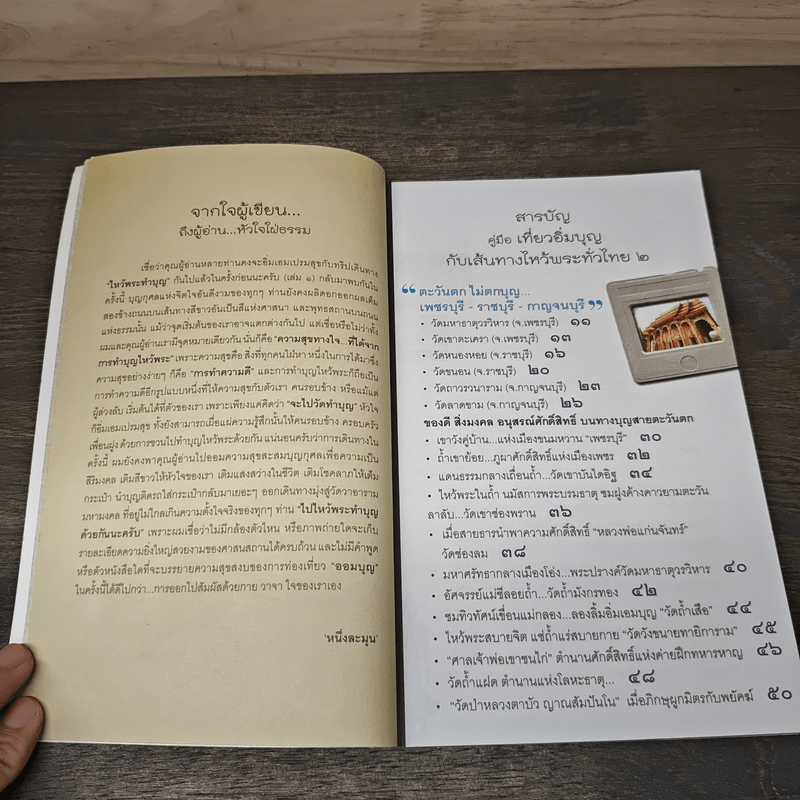 จากใจผู้เขียน...
ถึงผู้อ่าน...หัวใจใฝ่ธรรม
เชื่อว่าคุณผู้อ่านหลายท่านคงจะอิ่มเอมเปรมสุขกับทริปเดินทาง
"ไหว้พระทำบุญ" กันไปแล้วในครั้งก่อนนะครับ (เล่ม ๑) กลับมาพบกันใน
ครั้งนี้ บุญกุศลแห่งจิตใจอันดีงามของทุกๆ ท่านยังคงผลิดอกออกผลเต็ม
สองข้างถนนบนเส้นทางสีขาวอันเป็นสีแห่งศาสนา และพุทธสถานบนถนน
แห่งธรรมนั้น แม้ว่าจุดเริ่มต้นของเราอาจแตกต่างกันไป แต่เชื่อหรือไม่ว่าทั้ง
ผมและคุณผู้อ่านเรามีจุดหมายเดียวกัน นั่นก็คือ "ความสุขทางใจ...ที่ได้จาก
การทำบุญไหว้พระ" เพราะความสุขคือ สิ่งที่ทุกคนใฝ่หา หนึ่งในการได้มาซึ่ง
ความสุขอย่างง่ายๆ ก็คือ "การทำความดี" และการทำบุญไหว้พระก็ถือเป็น
การทำความดีอีกรูปแบบหนึ่งที่ให้ความสุขกับตัวเรา คนรอบข้าง หรือแม้แต่
ผู้ล่วงลับ เริ่มต้นได้ที่ตัวของเรา เพราะเพียงแค่คิดว่า "จะไปวัดทำบุญ" หัวใจ
ก็อิ่มเอมเปรมสุข ทั้งยังสามารถเผื่อแผ่ความรู้สึกนั้นให้คนรอบข้าง ครอบครัว
เพื่อนฝูง ด้วยการชวนไปทำบุญไหว้พระด้วยกัน แน่นอนครับว่าการเดินทางใน
ครั้งนี้ ผมยังคงพาคุณผู้อ่านไปออมความสุขสะสมบุญกุศลเพื่อความเป็น
สิริมงคล เติมสีขาวให้หัวใจของเรา เติมแสงสว่างในชีวิต เติมโชคลาภให้เต็ม
กระเป๋า นำบุญติดรถใส่กระเป๋ากลับมาเยอะๆ ออกเดินทางมุ่งสู่วัดวาอาราม
มหามงคล ที่อยู่ไม่ไกลเกินความตั้งใจจริงของทุกๆ ท่าน "ไปไหว้พระทำบุญ
ด้วยกันนะครับ" เพราะผมเชื่อว่าไม่มีกล้องตัวไหน หรือภาพถ่ายใดจะเก็บ
รายละเอียดความยิ่งใหญ่สวยงามของศาสนสถานได้ครบถ้วน และไม่มีคำพูด
หรือตัวหนังสือใดที่จะบรรยายความสุขสงบของการท่องเที่ยว "ออมบุญ"
ในครั้งนี้ได้ดีไปกว่า...การออกไปสัมผัสด้วยกาย วาจา ใจของเราเอง
'หนึ่งละมุน'
สารบัญ
คู่มือ เที่ยวอิ่มบุญ
กับเส้นทางไหว้พระทั่วไทย ๒
“ ตะวันตก ไม่ตกบุญ...
เพชรบุรี - ราชบุรี - กาญจนบุรี ”
• วัดมหาธาตุวรวิหาร (จ.เพชรบุรี) ๑๑
• วัดเขาตะเครา (จ.เพชรบุรี) ๑๓
• วัดหนองหอย (จ.ราชบุรี) ๑๖
• วัดขนอน (จ.ราชบุรี) ๒๐
• วัดถาวรวราราม (จ.กาญจนบุรี) ๒๓
• วัดลาดขาม (จ.กาญจนบุรี) ๒๖
ของดี สิ่งมงคล อนุสรณ์ศักดิ์สิทธิ์ บนทางบุญสายตะวันตก
• เขาวังคู่บ้าน...แห่งเมืองขนมหวาน "เพชรบุรี" ๓๐
• ถ้ำเขาย้อย...ภูผาศักดิ์สิทธิ์แห่งเมืองเพชร ๓๒
• แดนธรรมกลางเถื่อนถ้ำ...วัดเขาบันไดอิฐ ๓๔
• ไหว้พระในถ้ำ นมัสการพระบรมธาตุ ชมฝูงค้างคาวยามตะวัน
ลาลับ...วัดเขาช่องพราน ๓๖
• เมื่อสายธารนำพาความศักดิ์สิทธิ์ "หลวงพ่อแก่นจันทร์"
วัดช่องลม ๓๘
• มหาศรัทธากลางเมืองโอ่ง...พระปรางค์วัดมหาธาตุวรวิหาร ๔๐
• อัศจรรย์แม่ชีลอยถ้ำ...วัดถ้ำมังกรทอง ๔๒
• ชมทิวทัศน์เขื่อนแม่กลอง...ลองลิ้มอิ่มเอมบุญ "วัดถ้ำเสือ" ๔๔
• ไหว้พระสบายจิต แช่ถ้ำแร่สบายกาย "วัดวังขนายทายิการาม" ๔๕
• "ศาลเจ้าพ่อเขาชนไก่" ตำนานศักดิ์สิทธิ์แห่งค่ายฝึกทหารหาญ ๔๖
• วัดถ้ำแฝด ตำนานแห่งโลหะธาตุ... ๔๘
• "วัดป่าหลวงตาบัว ญาณสัมปันโน" เมื่อภิกษุผูกมิตรกับพยัคฆ์ ๕๐